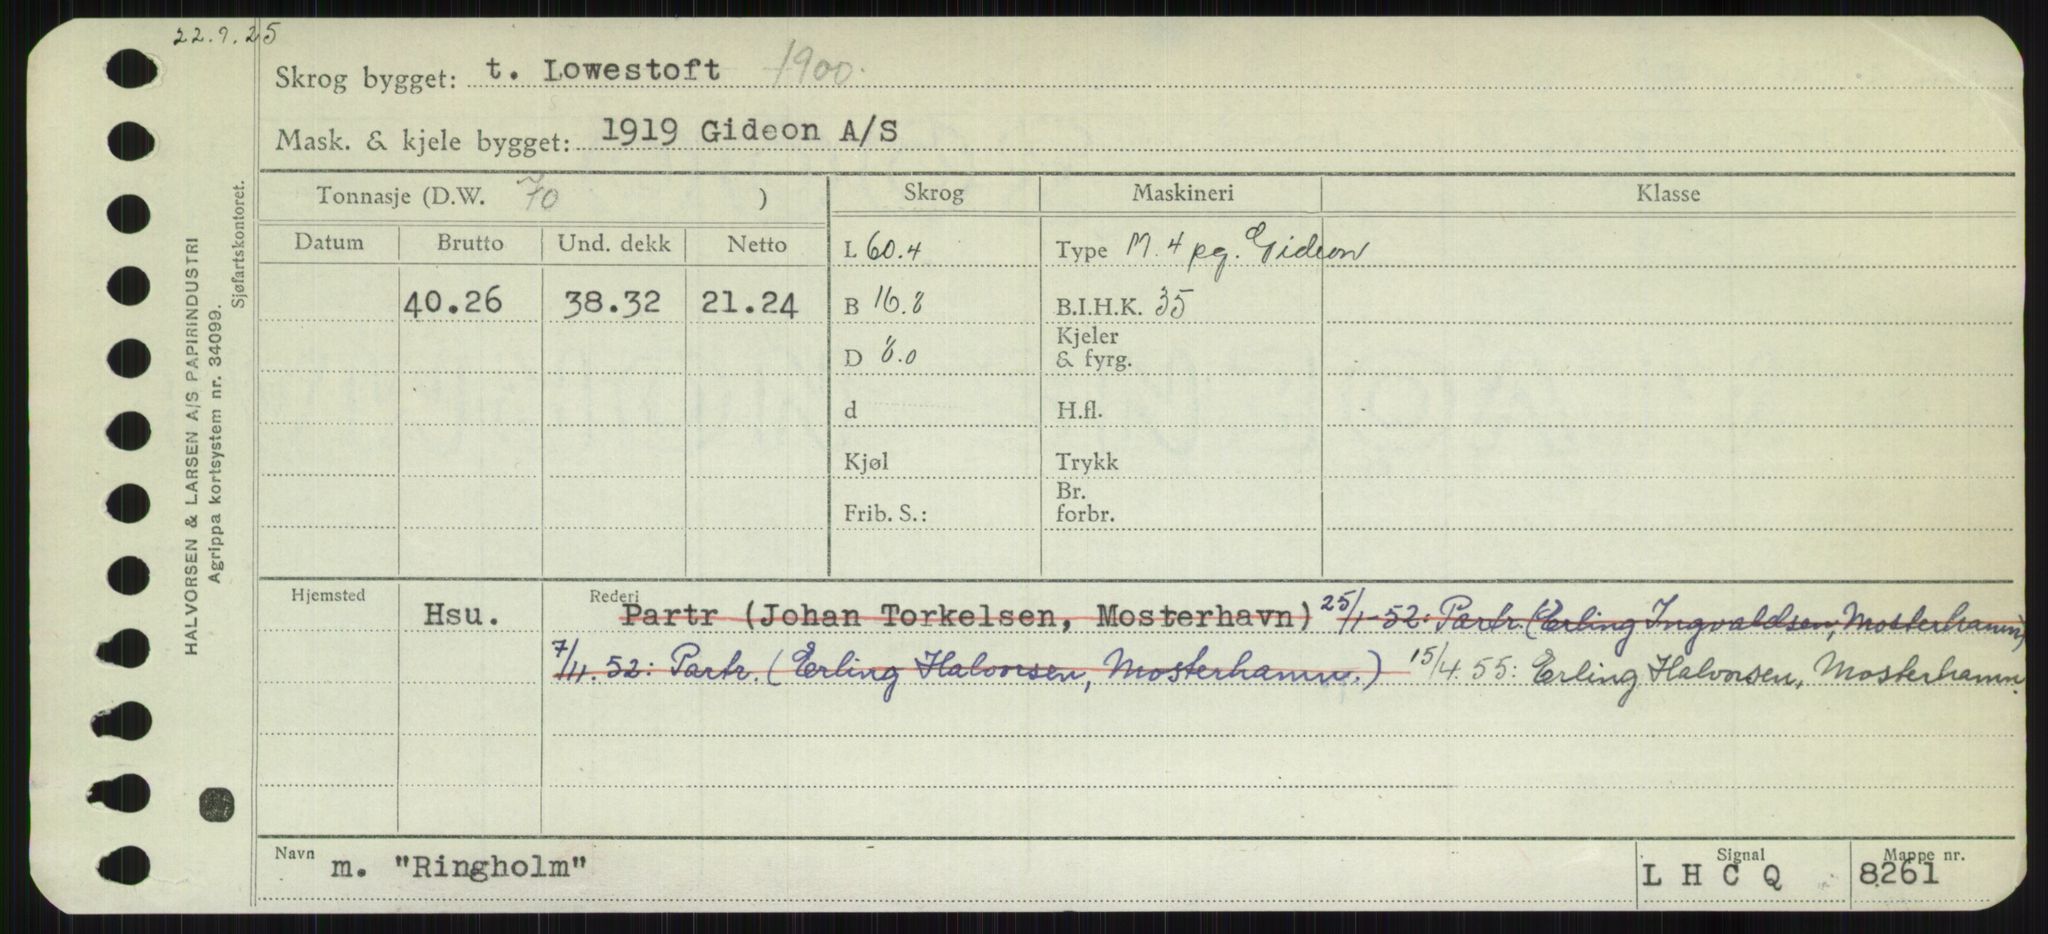 22.9.25
Skrog bygget: t. Lowestoft 1900.
Mask. & kjele bygget: 1919 Gideon A/S
HALVORSEN & LARSEN A/S PAPIRINDUSTRI
Agrippa kortsystem nr. 34099.
Sjøfartskontoret.
Tonnasje (D.W. 70 ) Skrog Maskineri Klasse
Datum Brutto Und. dekk Netto L 60.4 Type M. 4 pg. Gideon
40.26 38.32 21.24 B 16.8 B.I.H.K. 35
D 8.0 Kjeler & fyrg.
d H.fl.
Kjøl Trykk
Frib. S.: Br. forbr.
Hjemsted Hsu. Rederi Partr (Johan Torkelsen, Mosterhavn) 25/1-52: Partr. (Erling Ingvaldsen, Mosterhamn)
7/11.52: Partr. (Erling Halvorsen, Mosterhamn.) 15/4.55: Erling Halvorsen, Mosterhamn.
Navn m. "Ringholm" Signal L H C Q Mappe nr. 8261